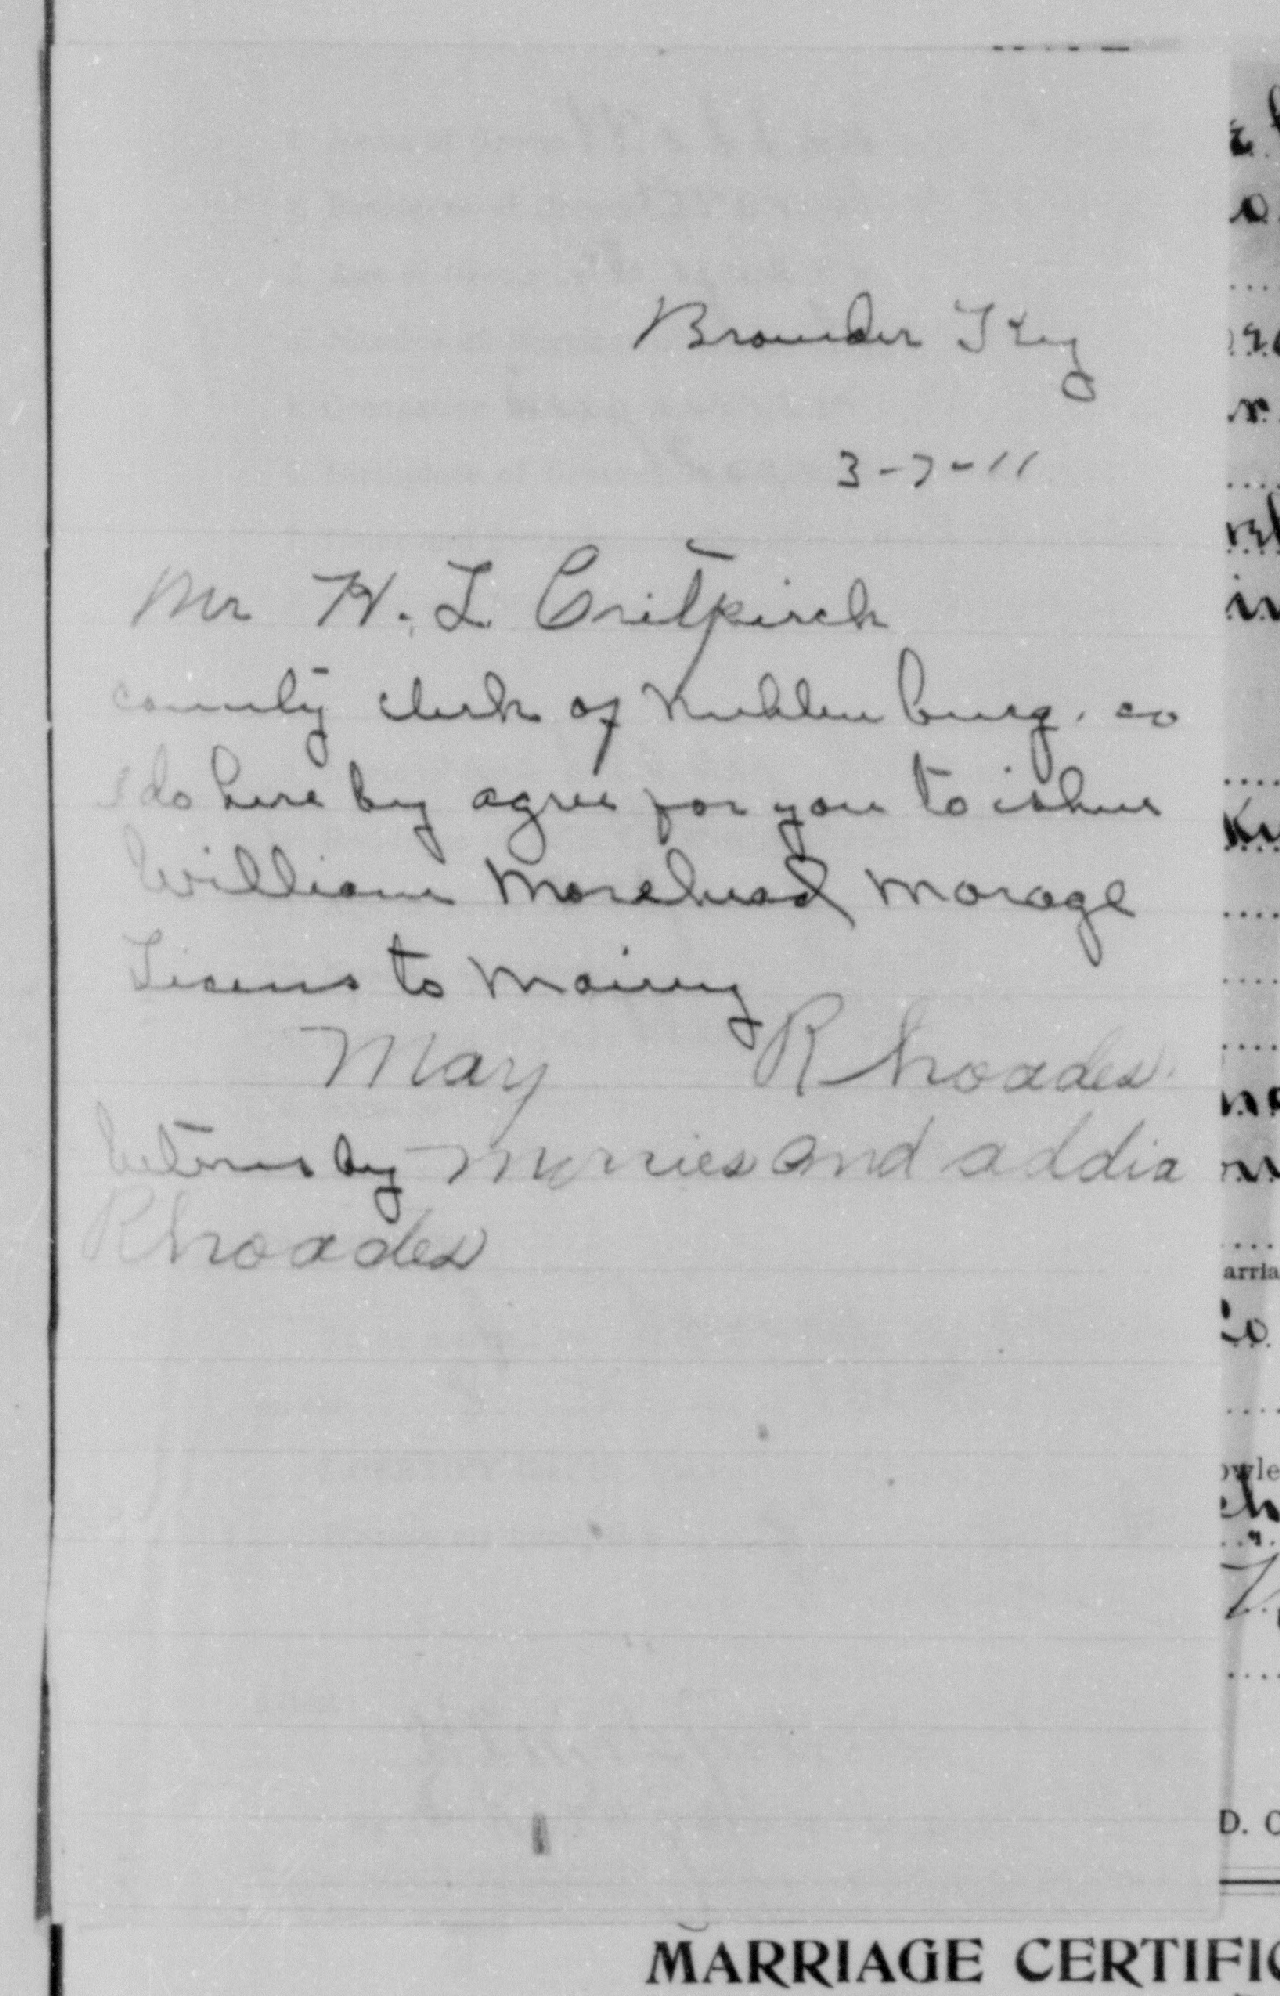 Browder Ky
3-7-11
Mr W. L. Critpirch
county clerk of Muhlenburg. co
I do here by agree for you to ishue
William Morehead Marage
Lisens to Mairey
May Rhoades
by Morries and addia
Rhoades
MARRIAGE CERTIFIC